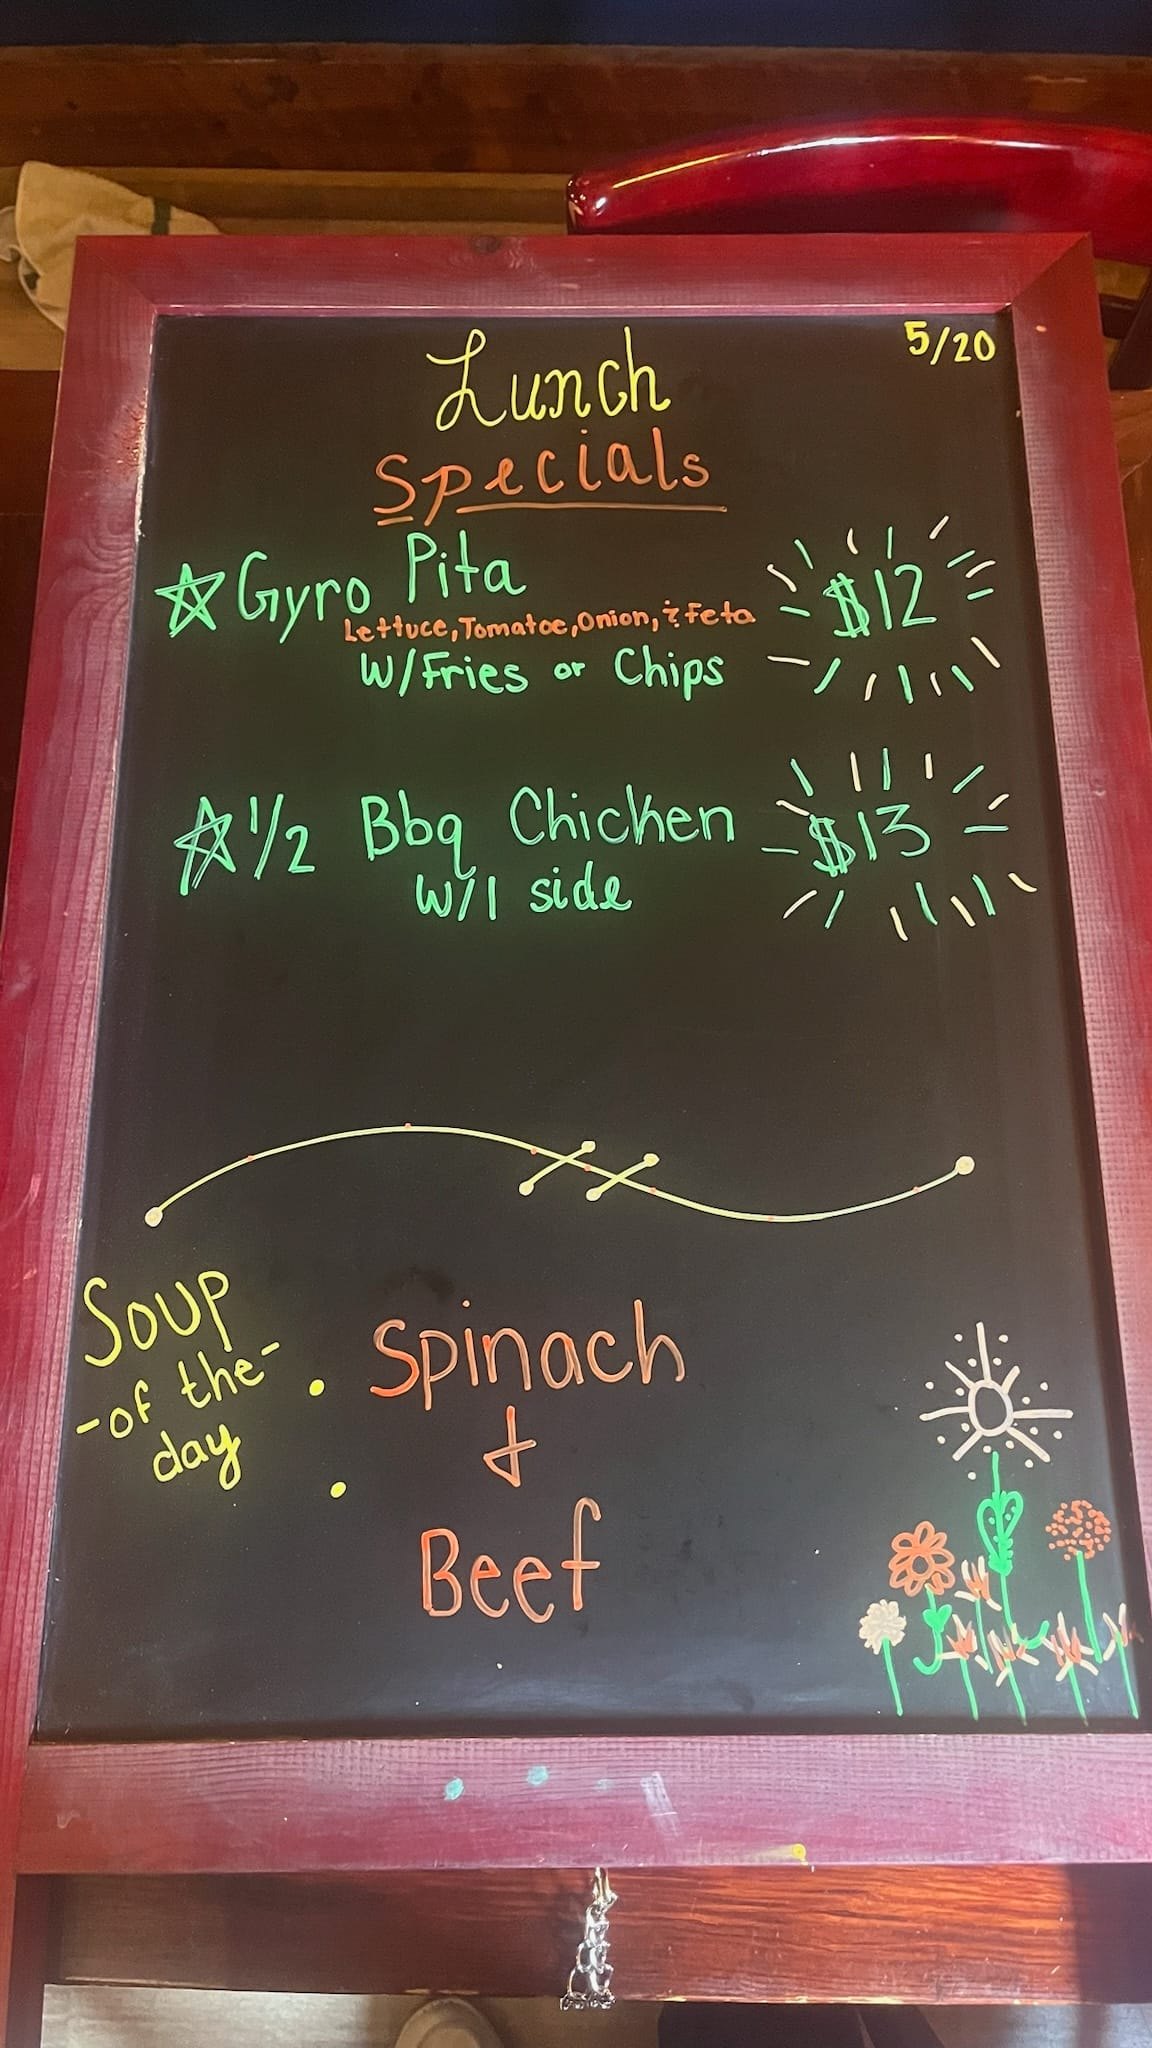 5/20
Lunch
Specials
Gyro Pita $12
Lettuce, Tomatoe, Onion, & Feta
W/Fries or Chips
1/2 Bbq Chicken $13
W/1 side
Soup
-of the-
day :
Spinach
&
Beef